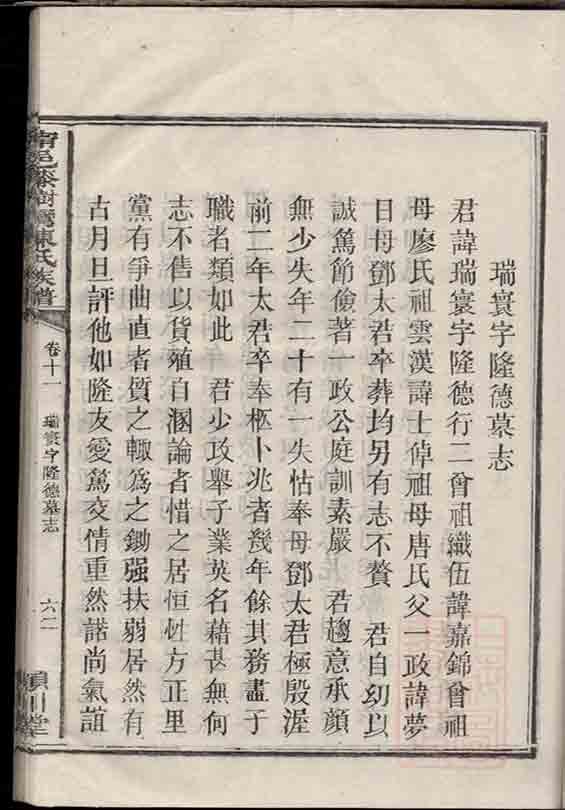 瑞寰字隆德墓志
君諱瑞寰字隆德行二曾祖織伍諱嘉錦曾祖
母廖氏祖雲漢諱士倬祖母唐氏父一政諱夢
日母鄧太君卒葬均另有志不贅 君自幼以
誠篤節儉著一政公庭訓素嚴 君趨意承顔
無少失年二十有一失怙奉母鄧太君極殷渥
前二年太君卒奉柩卜兆者幾年餘其務盡于
職者類如此 君少攻舉子業英名藉甚無何
志不售以貨殖自溷論者惜之居恒性方正里
黨有爭曲直者質之輙爲之鋤强扶弱居然有
古月旦評他如隆友愛篤交情重然諾尚氣誼
氏族譜
卷十一
瑞寰字隆德墓志
六二
川堂